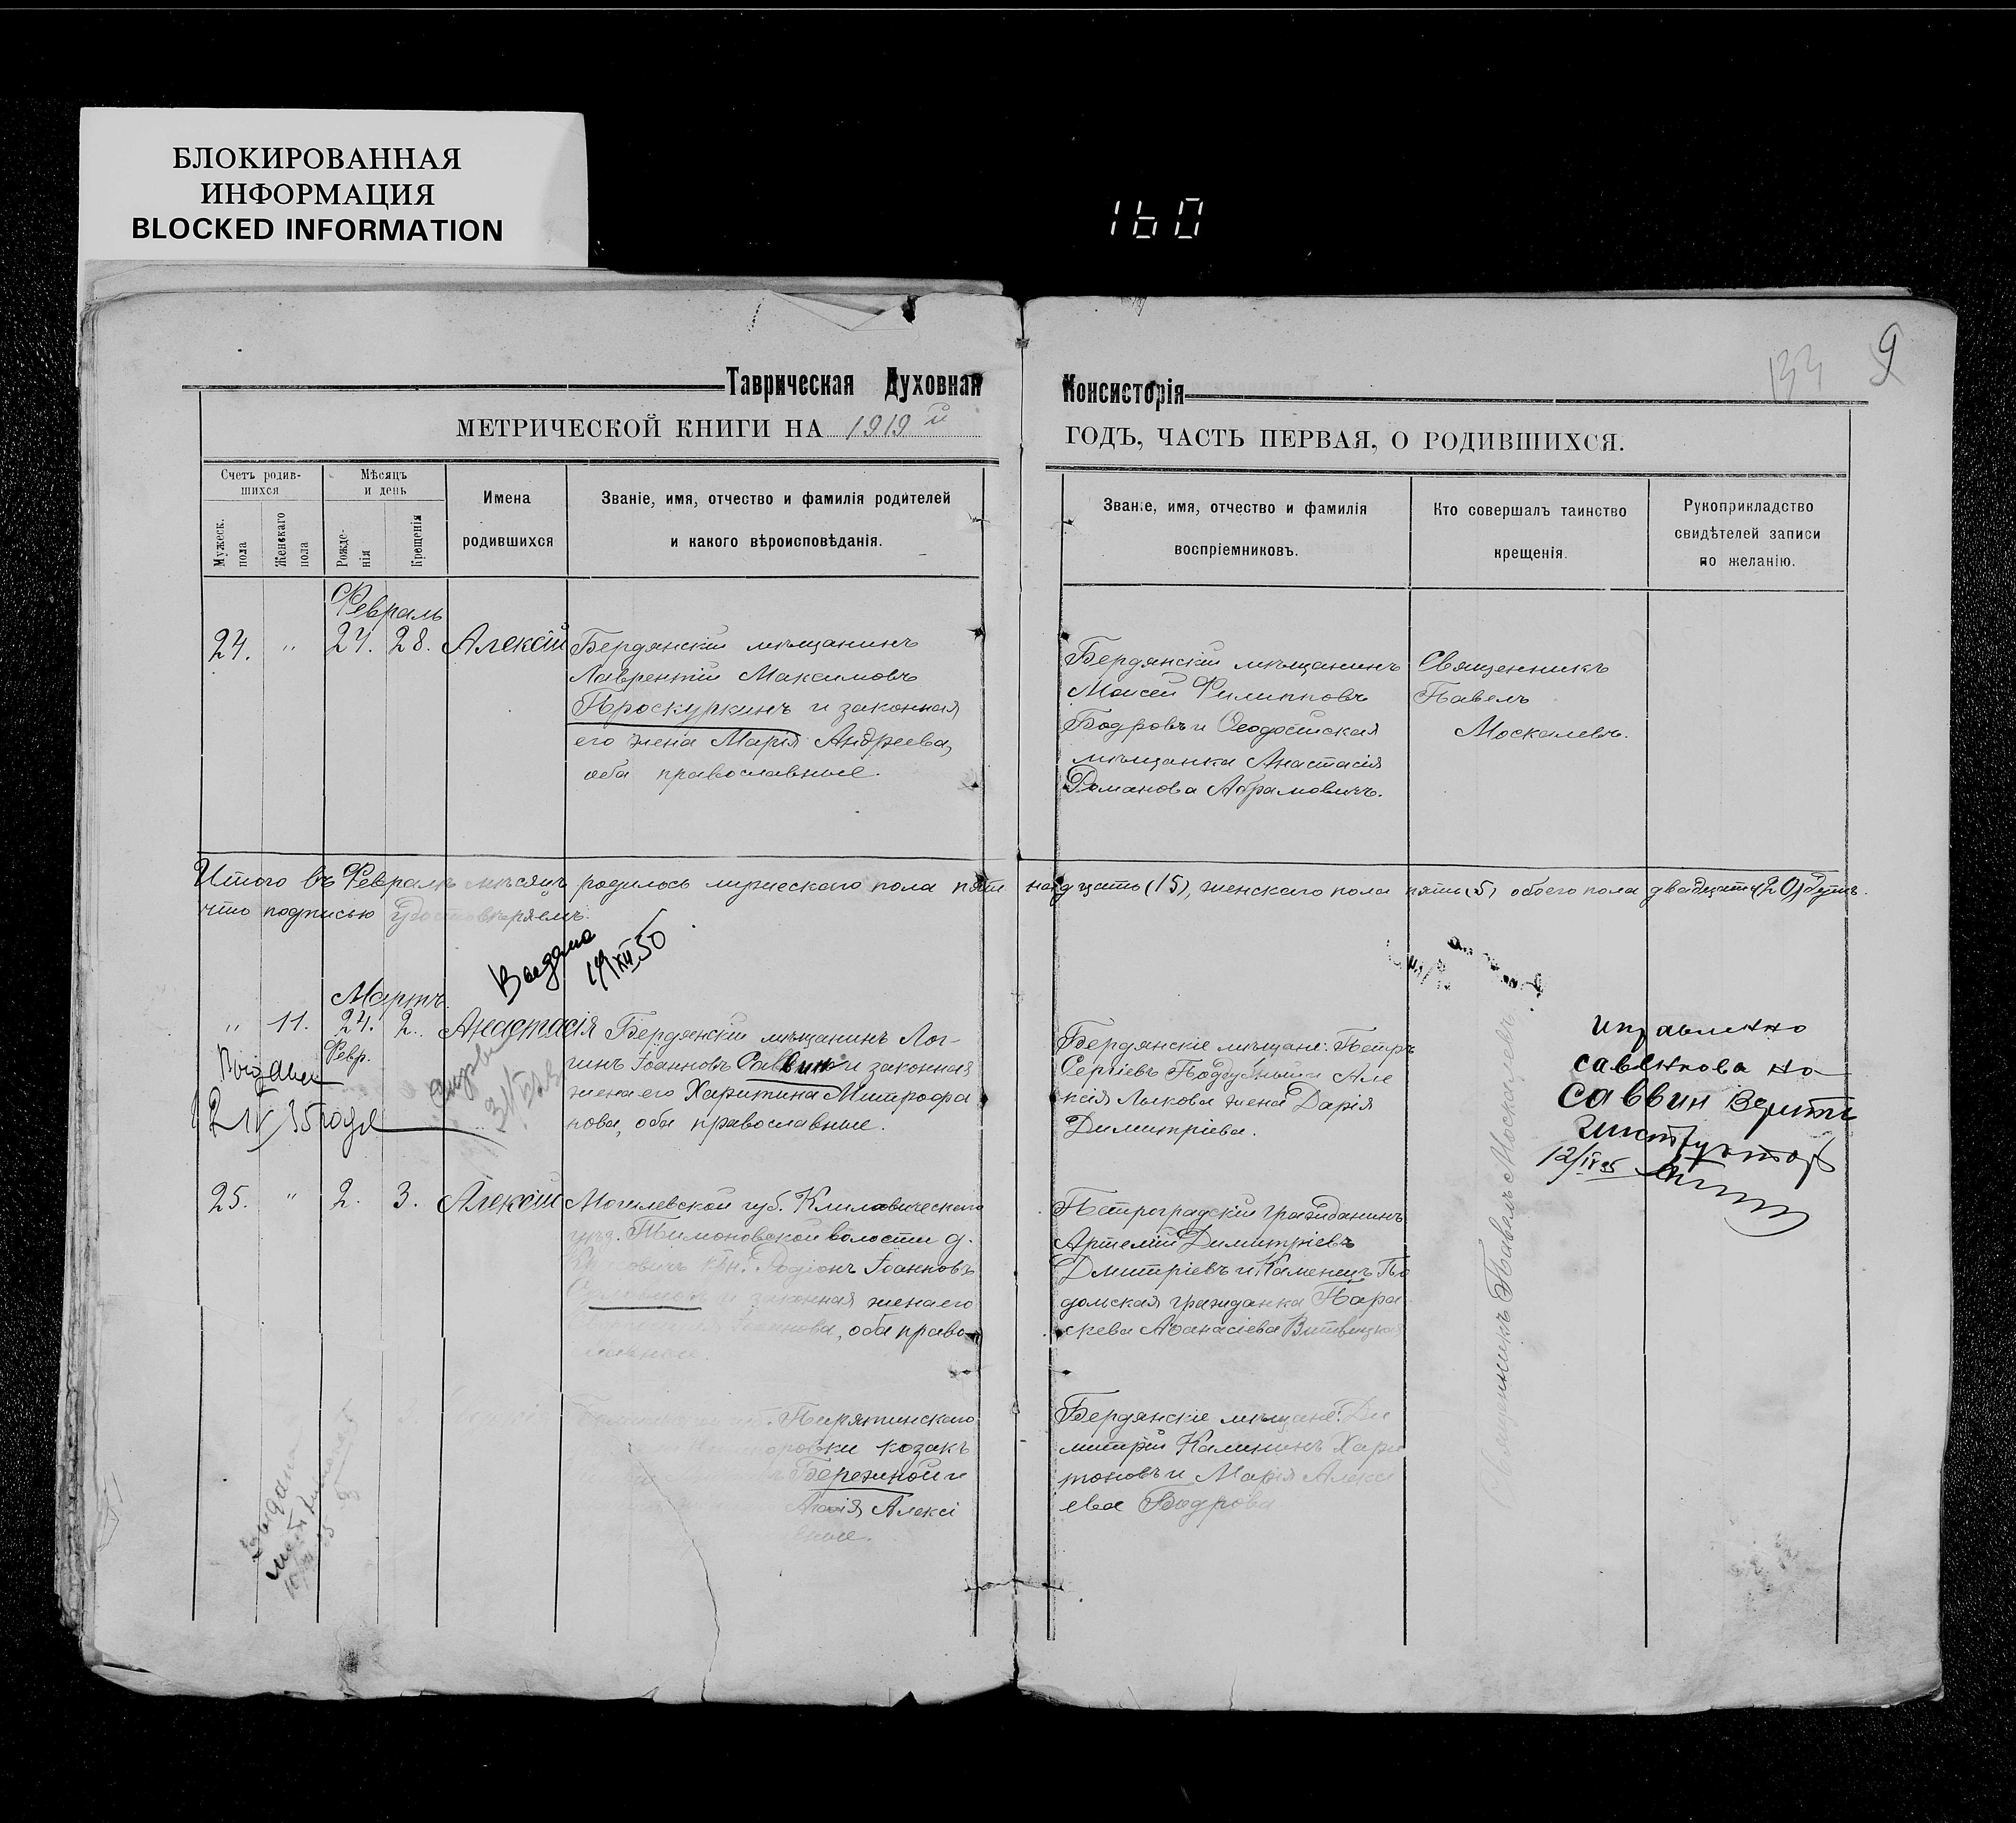 БЛОКИРОВАННАЯ
ИНФОРМАЦИЯ
BLOCKED INFORMATION
160
133 9
Таврическая Духовная Консисторія
МЕТРИЧЕСКОЙ КНИГИ НА 1919й ГОДЪ, ЧАСТЬ ПЕРВАЯ, О РОДИВШИХСЯ.
Счетъ родив-
шихся
Мужеск.
пола
Женскаго
пола
Мѣсяцъ
и день
Рожде-
нія
Крещенія
Имена
родившихся
Званіе, имя, отчество и фамилія родителей
и какого вѣроисповѣданія.
Званіе, имя, отчество и фамилія
воспріемниковъ.
Кто совершалъ таинство
крещенія.
Рукоприкладство
свидѣтелей записи
по желанію.
Февраль
24. " 24. 28. Алексій
Бердянскій мѣщанинъ
Лаврентій Максимовъ
Проскуркинъ и законная
его жена Марія Андреева,
оба православные.
Бердянскій мѣщанинъ
Моисей Филипповъ
Бодровъ и Ѳеодосійская
мѣщанка Анастасія
Романова Абрамовичъ.
Священникъ
Павелъ
Москалевъ.
Итого въ Февралѣ мѣсяцѣ родилось мужескаго пола пятнадцать (15), женскаго пола пять (5) обоего пола двадцать (20) душъ.
что подписью удостовѣряемъ.
Выдано
19 XII 50
Мартъ
" 11. 24. 2. Анастасія
Февр.
Бердянскій мѣщанинъ Лог-
гинъ Іоанновъ Саввин и законная
жена его Харитина Митрофа
нова, оба православные.
Бердянскіе мѣщане: Петръ
Сергіевъ Поддубный и Але
ксія Лыкова жена Дарія
Димитріева.
12 IV 35 года
исправленно
савенкова на
саввин верить
12/IV 35
Священникъ Павелъ Москалевъ.
25. " 2. 3. Алексій
Могилевской губ. Климовическаго
уѣзд. Тимоновской волости д.
Родіонъ Іоанновъ
и законная жена его
Іоаннова, оба право-
славные.
Петроградскій гражданинъ
Артемій Димитріевъ
Дмитріевъ и Каменецъ По
дольская гражданка Пара
скева Аѳанасіева
Пирятинскаго
козакъ
Бережной и
Марія Алексі
Бердянскіе мѣщане: Ди
митрій Калининъ Хари
тоновъ и Марія Алексі
ева Бодрова